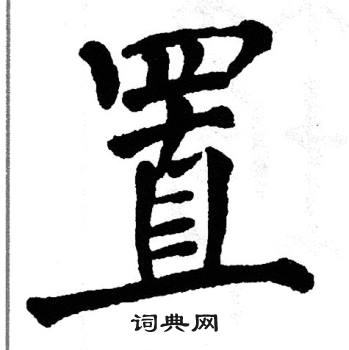 置
词典网